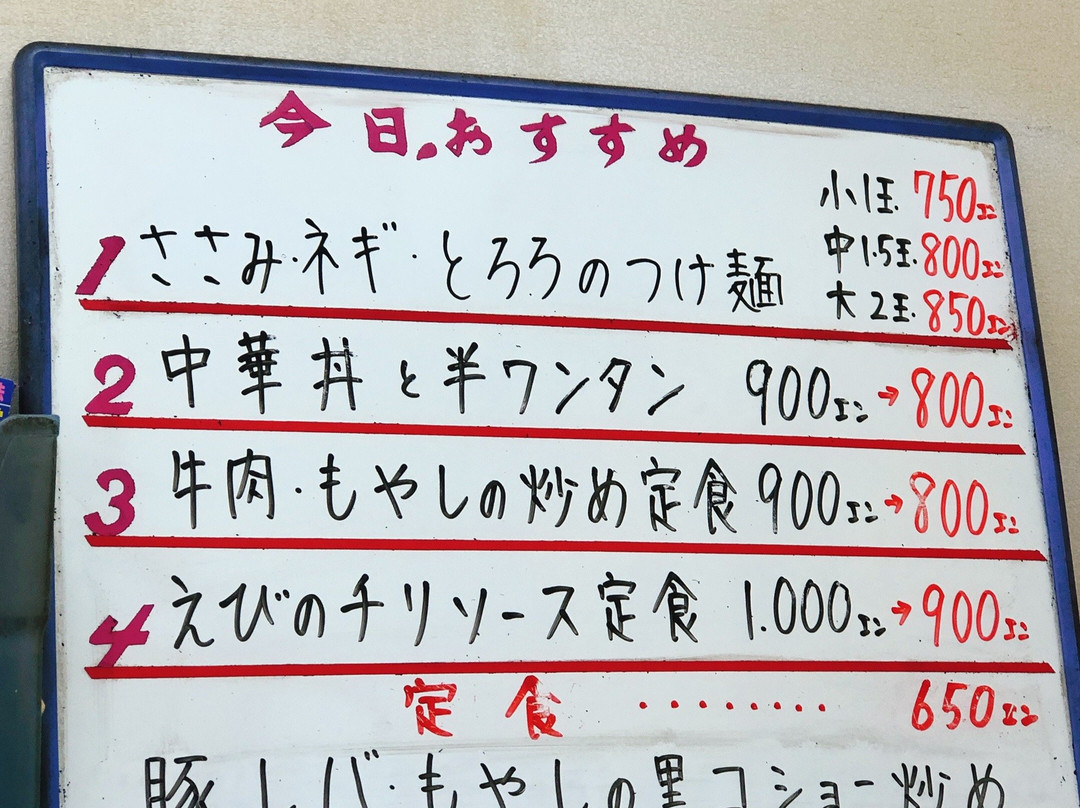 今日.おすすめ
小1玉.750エン
1 ささみ・ネギ・とろろのつけ麺 中1.5玉.800エン
大2玉.850エン
2 中華丼と半ワンタン 900エン→800エン
3 牛肉・もやしの炒め定食 900エン→800エン
4 えびのチリソース定食 1.000エン→900エン
定食・・・・・・・・・650エン
豚レバ・もやしの黒コショー炒め